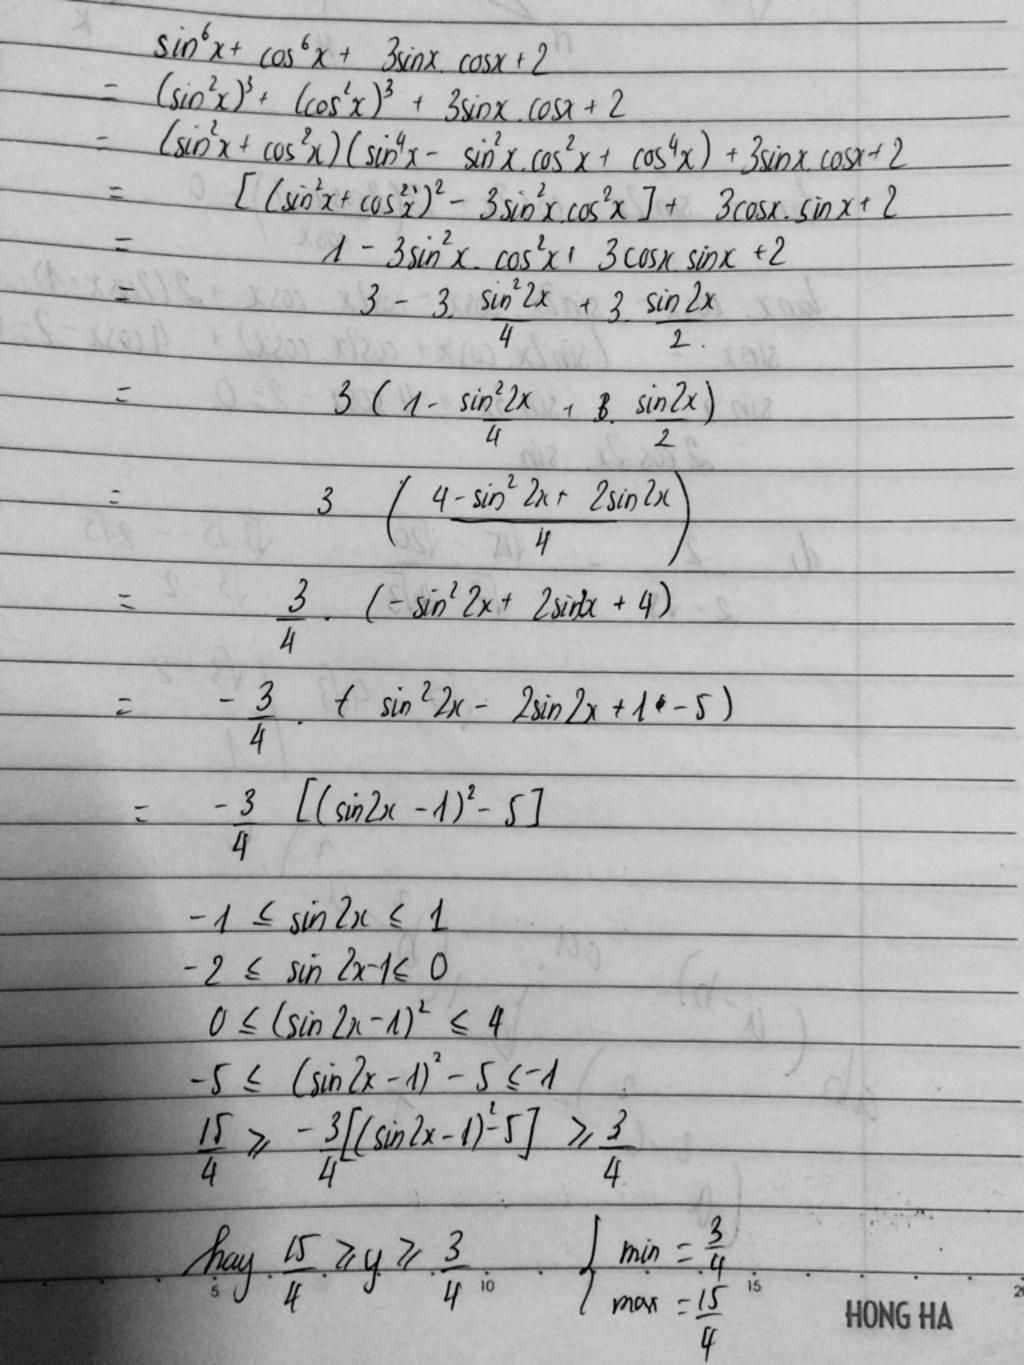 sin⁶x + cos⁶x + 3sinx. cosx + 2
= (sin²x)³ + (cos²x)³ + 3sinx . cosx + 2
= (sin²x + cos²x)(sin⁴x - sin²x.cos²x + cos⁴x) + 3sinx.cosx + 2
= [(sin²x + cos²x)² - 3sin²x.cos²x] + 3cosx.sinx + 2
= 1 - 3sin²x. cos²x + 3cosx sinx + 2
= 3 - 3. sin²2x/4 + 3. sin2x/2.
= 3 (1 - sin²2x/4 + sin2x/2)
= 3 ((4 - sin²2x + 2sin2x)/4)
= 3/4 . (-sin²2x + 2sin2x + 4)
= -3/4 . (sin²2x - 2sin2x + 1 - 5)
= -3/4 [(sin2x - 1)² - 5]
-1 ≤ sin2x ≤ 1
-2 ≤ sin 2x-1 ≤ 0
0 ≤ (sin 2x - 1)² ≤ 4
-5 ≤ (sin2x - 1)² - 5 ≤ -1
15/4 ⩾ -3/4[(sin2x - 1)² - 5] ⩾ 3/4
hay 15/4 ⩾ y ⩾ 3/4 { min = 3/4
max = 15/4
5 10 15 20
HONG HA